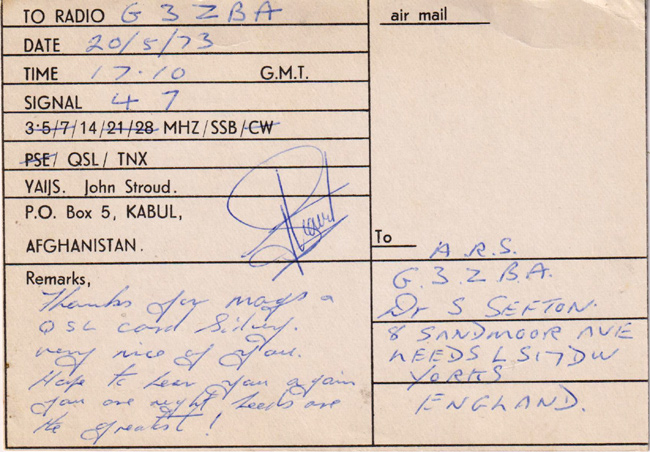 TO RADIO G3ZBA
DATE 20/5/73
TIME 17.10 G.M.T.
SIGNAL 4 7
3·5/7/14/21/28 MHZ/SSB/CW
PSE/ QSL/ TNX
YAIJS. John Stroud.
P.O. Box 5, KABUL,
AFGHANISTAN.
Remarks,
Thanks for mags &
QSL card Sidney.
very nice of you.
Hope to hear you again
you are right Leeds are
the greatest!
air mail
To A.R.S.
G.3.Z.B.A.
Dr S SEFTON.
8 SANDMOOR AVE
LEEDS LS17 7DW
YORKS
ENGLAND.